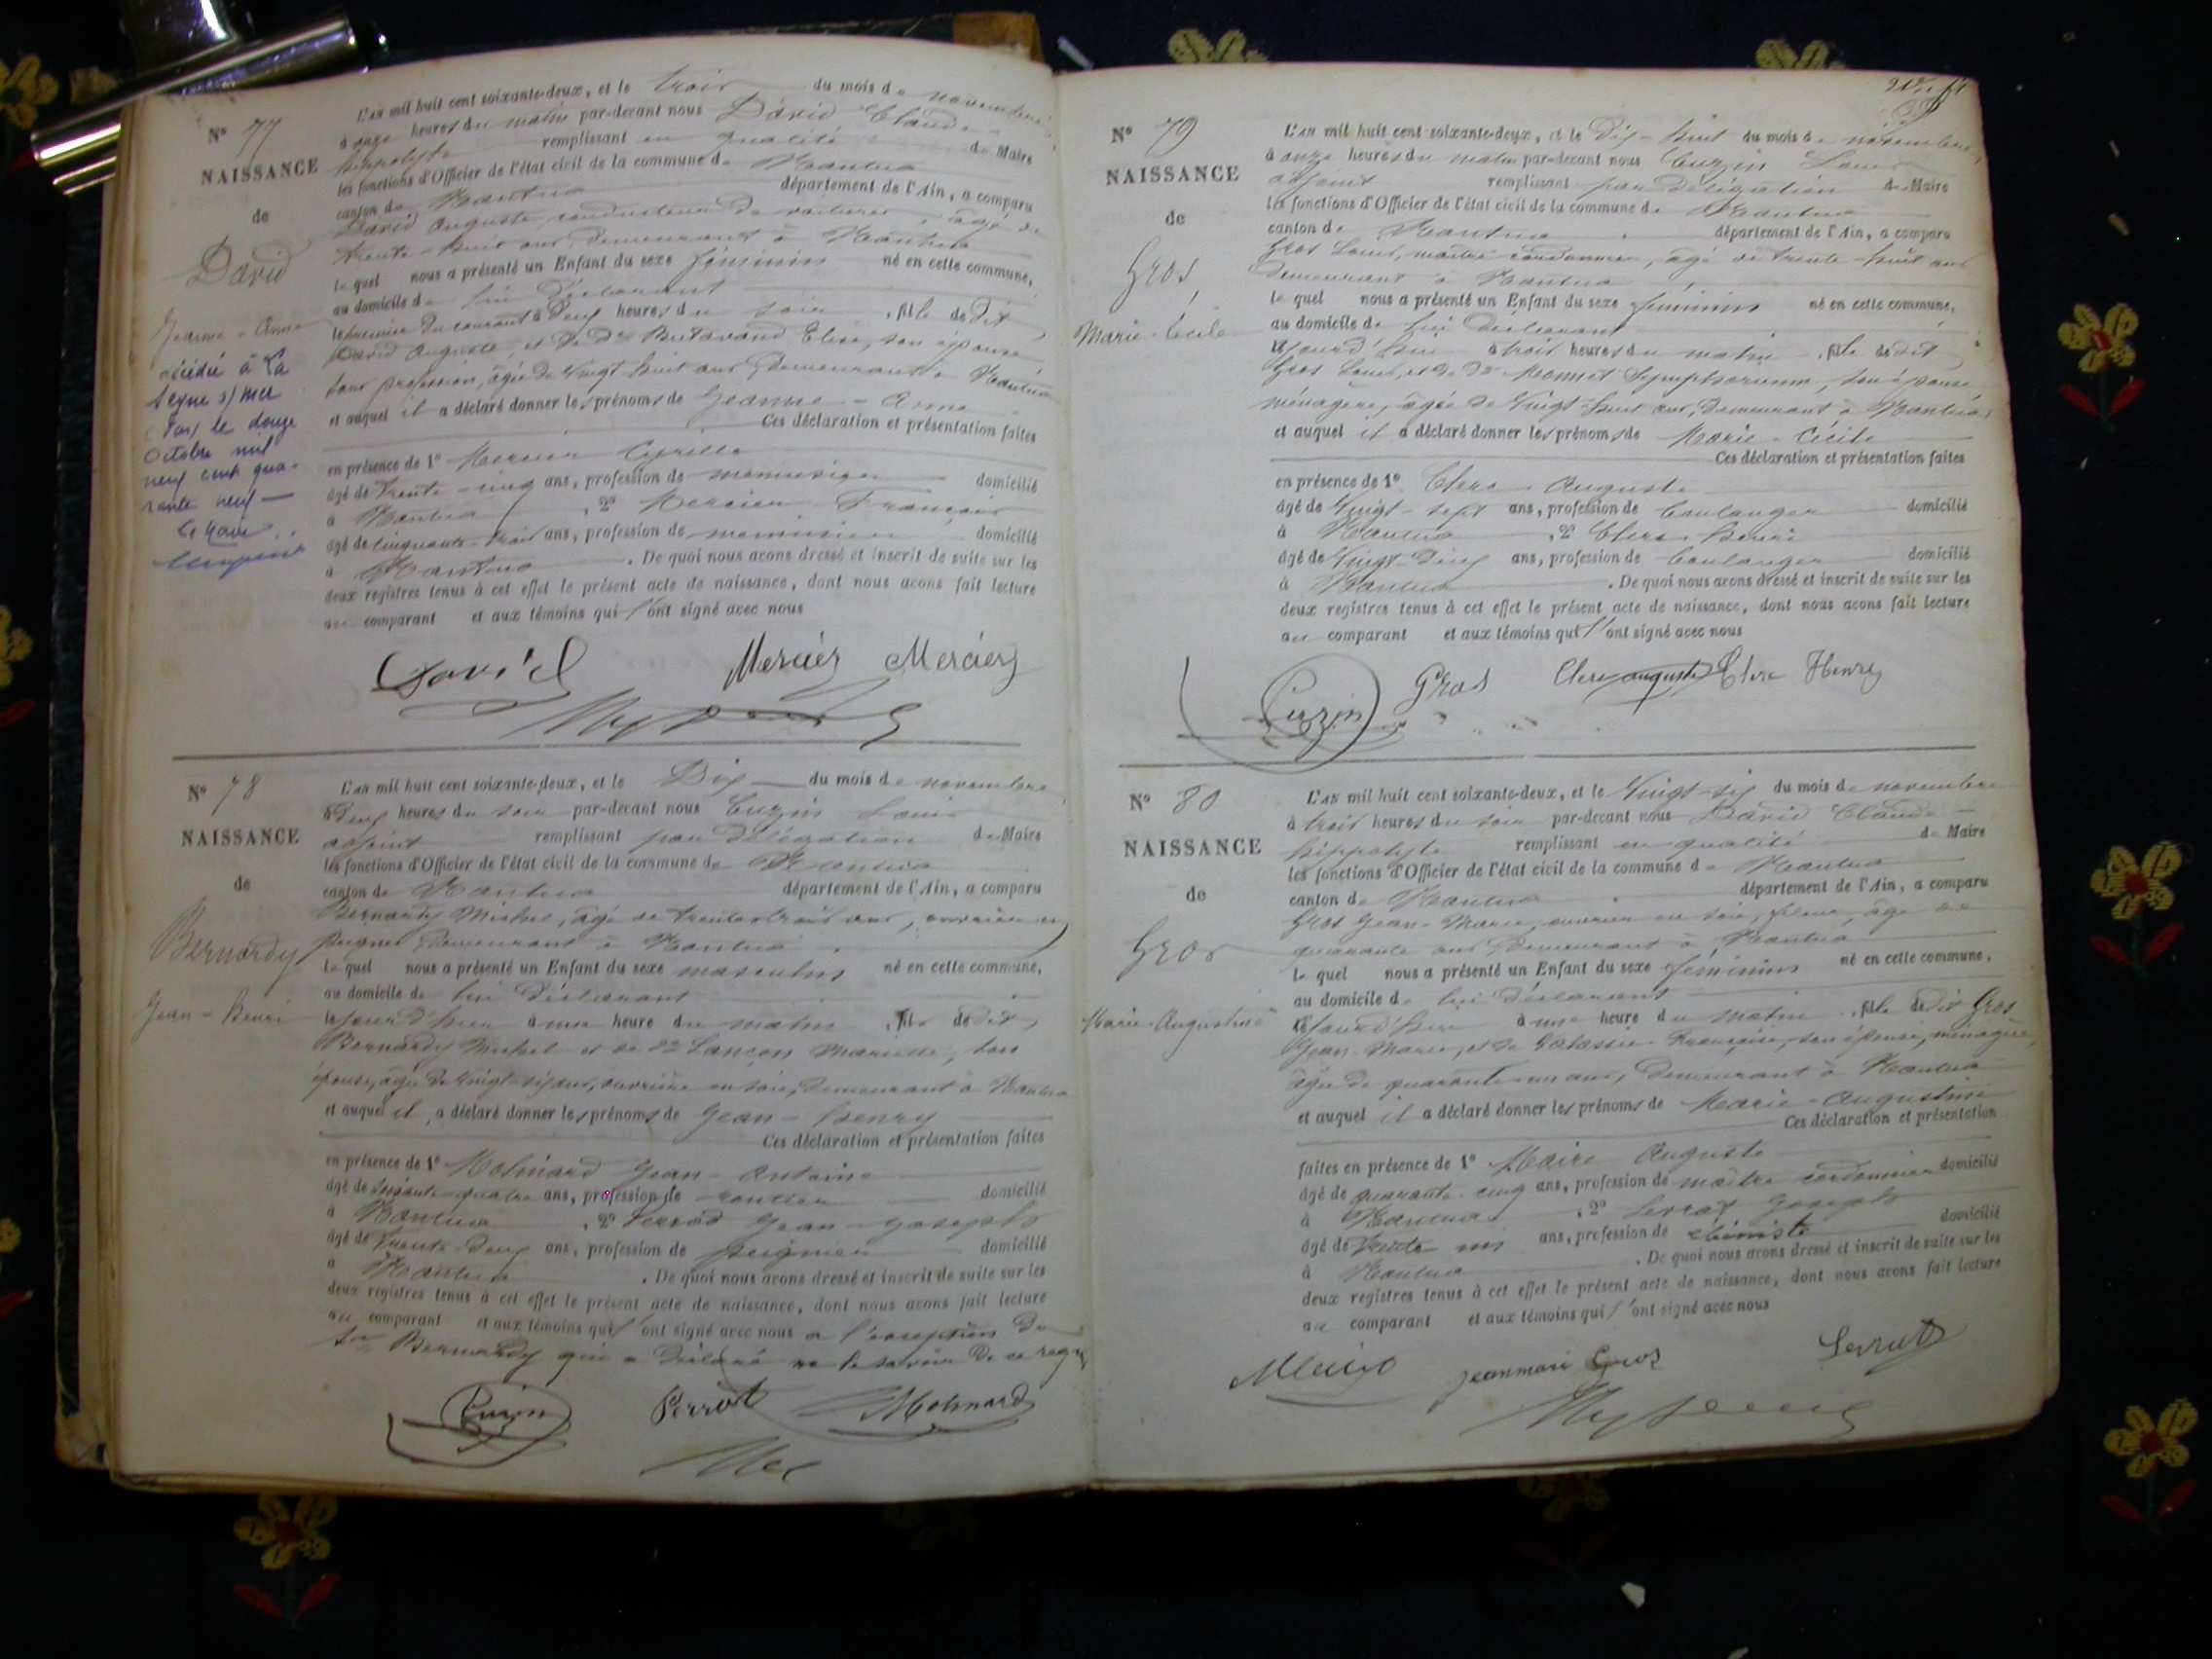 N° 77
NAISSANCE
de
David
Jeanne-Anne
décédé à La
Seyne s/mer
(Var) le douze
Octobre mil
neuf cent qua-
rante neuf —
Le Maire
L'AN mil huit cent soixante-deux, et le trois du mois de novembre
à onze heures du matin par-devant nous David Claude
hippolyte remplissant en qualité de Maire
les fonctions d'Officier de l'état civil de la commune de Nantua
canton de Nantua département de l'Ain, a comparu
David Auguste, conducteur de voitures, âgé de
trente-huit ans, demeurant à Nantua
lequel nous a présenté un Enfant du sexe féminin né en cette commune,
au domicile de lui déclarant
le premier du courant à deux heures du soir, fille de dit
David Auguste, et de De Butavand Elise, son épouse
sans profession, âgée de vingt huit ans, demeurant à Nantua
et auquel il a déclaré donner les prénoms de Jeanne-Anne
Ces déclaration et présentation faites
en présence de 1° Mercier Cyrille
âgé de trente-cinq ans, profession de menuisier domicilié
à Nantua, 2° Mercier François
âgé de cinquante-trois ans, profession de menuisier domicilié
à Nantua. De quoi nous avons dressé et inscrit de suite sur les
deux registres tenus à cet effet le présent acte de naissance, dont nous avons fait lecture
au comparant et aux témoins qui l'ont signé avec nous
David Mercier Mercier
N° 78
NAISSANCE
de
Bernardy
Jean-Henri
L'AN mil huit cent soixante-deux, et le Dix du mois de novembre
à deux heures du soir par-devant nous Cuzin Louis
adjoint remplissant par délégation de Maire
les fonctions d'Officier de l'état civil de la commune de Nantua
canton de Nantua département de l'Ain, a comparu
Bernardy Michel, âgé de trente-trois ans, ouvrier en
peignes, demeurant à Nantua
lequel nous a présenté un Enfant du sexe masculin né en cette commune,
au domicile de lui déclarant
le jourd'hui à une heure du matin, fils de dit
Bernardy Michel et de De Lançon Mariette, son
épouse, âgée de vingt-six ans, ouvrière en soie, demeurant à Nantua
et auquel il a déclaré donner les prénoms de Jean-henry
Ces déclaration et présentation faites
en présence de 1° Molinard Jean-Antoine
âgé de soixante-quatre ans, profession de rentier domicilié
à Nantua, 2° Perrod Jean-Joseph
âgé de trente-deux ans, profession de peignier domicilié
à Nantua. De quoi nous avons dressé et inscrit de suite sur les
deux registres tenus à cet effet le présent acte de naissance, dont nous avons fait lecture
au comparant et aux témoins qui l'ont signé avec nous à l'exception du
Sr Bernardy qui a déclaré ne le savoir de ce requis
Cuzin Perrod Molinard
N° 79
NAISSANCE
de
Gros
Marie-Cécile
L'AN mil huit cent soixante-deux, et le Dix-huit du mois de novembre
à onze heures du matin par-devant nous Cuzin Louis
adjoint remplissant par délégation de Maire
les fonctions d'Officier de l'état civil de la commune de Nantua
canton de Nantua département de l'Ain, a comparu
Gros Louis, maître cordonnier, âgé de trente-huit ans
demeurant à Nantua
lequel nous a présenté un Enfant du sexe féminin né en cette commune,
au domicile de lui déclarant
le jourd'hui à trois heures du matin, fille de dit
Gros Louis, et de De Symphorienne, son épouse
ménagère, âgée de vingt-huit ans, demeurant à Nantua
et auquel il a déclaré donner les prénoms de Marie-Cécile
Ces déclaration et présentation faites
en présence de 1° Clerc Auguste
âgé de vingt-sept ans, profession de boulanger domicilié
à Nantua, 2° Clerc Henri
âgé de vingt-deux ans, profession de boulanger domicilié
à Nantua. De quoi nous avons dressé et inscrit de suite sur les
deux registres tenus à cet effet le présent acte de naissance, dont nous avons fait lecture
au comparant et aux témoins qui l'ont signé avec nous
Cuzin Gros Clerc auguste Clerc Henry
N° 80
NAISSANCE
de
Gros
Marie-Augustine
L'AN mil huit cent soixante-deux, et le Vingt-six du mois de novembre
à trois heures du soir par-devant nous David Claude
hippolyte remplissant en qualité de Maire
les fonctions d'Officier de l'état civil de la commune de Nantua
canton de Nantua département de l'Ain, a comparu
Gros Jean-Marie, ouvrier en soie, âgé de
quarante ans, demeurant à Nantua
lequel nous a présenté un Enfant du sexe féminin né en cette commune,
au domicile de lui déclarant
le jourd'hui à une heure du matin, fille de dit Gros
Jean-Marie, et de Françoise, son épouse, ménagère,
âgée de quarante-un ans, demeurant à Nantua
et auquel il a déclaré donner les prénoms de Marie-Augustine
Ces déclaration et présentation
faites en présence de 1° Maire Auguste
âgé de quarante-cinq ans, profession de maître cordonnier domicilié
à Nantua, 2° Joseph
âgé de trente un ans, profession de ébéniste domicilié
à Nantua. De quoi nous avons dressé et inscrit de suite sur les
deux registres tenus à cet effet le présent acte de naissance, dont nous avons fait lecture
au comparant et aux témoins qui l'ont signé avec nous
jeanmari Gros